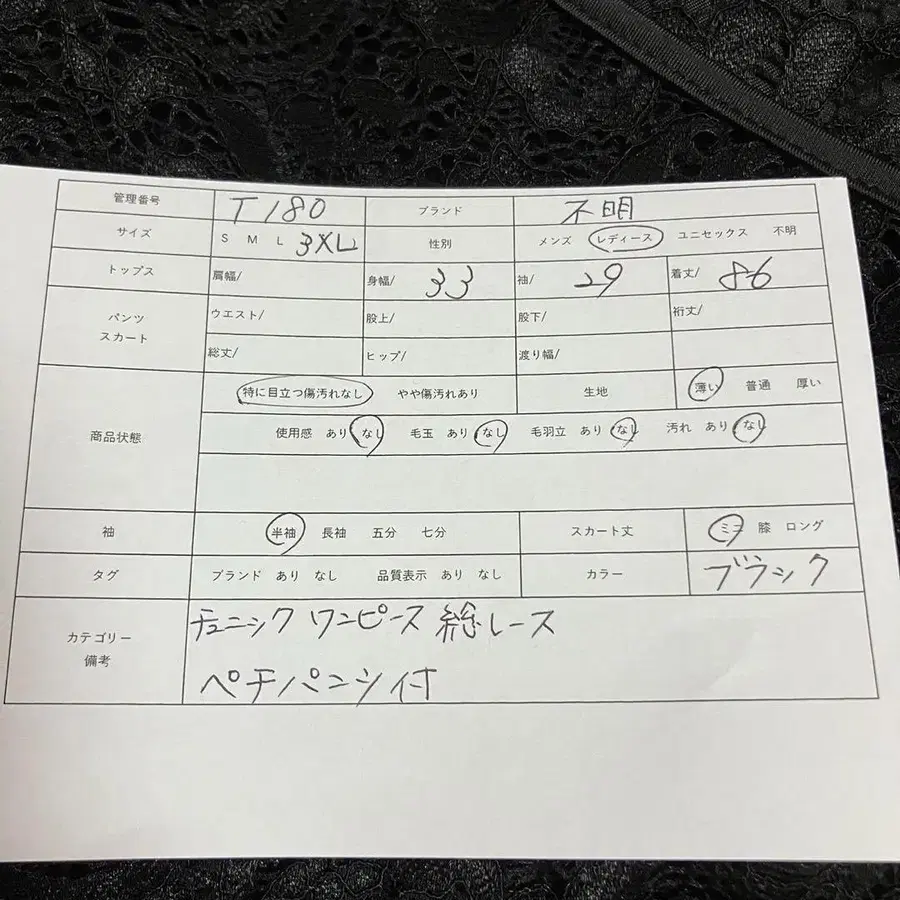 管理番号 T180 ブランド 不明
サイズ S M L 3XL 性別 メンズ レディース ユニセックス 不明
トップス 肩幅/ 身幅/ 33 袖/ 29 着丈/ 86
パンツ スカート ウエスト/ 股上/ 股下/ 裄丈/
総丈/ ヒップ/ 渡り幅/
特に目立つ傷汚れなし やや傷汚れあり 生地 薄い 普通 厚い
商品状態 使用感 あり なし 毛玉 あり なし 毛羽立 あり なし 汚れ あり なし
袖 半袖 長袖 五分 七分 スカート丈 ミニ 膝 ロング
タグ ブランド あり なし 品質表示 あり なし カラー ブラック
カテゴリー 備考 チュニック ワンピース 総レース
ペチパンツ付